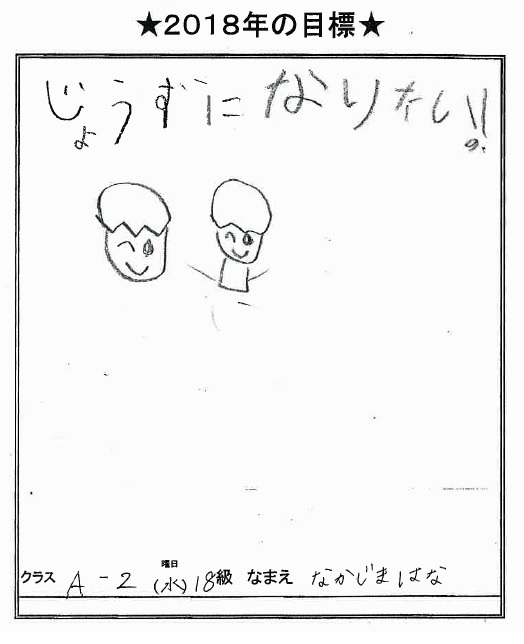 ★2018年の目標★
じょうずになりたい!!
クラス A-2 曜日(水) 18級 なまえ なかじまはな